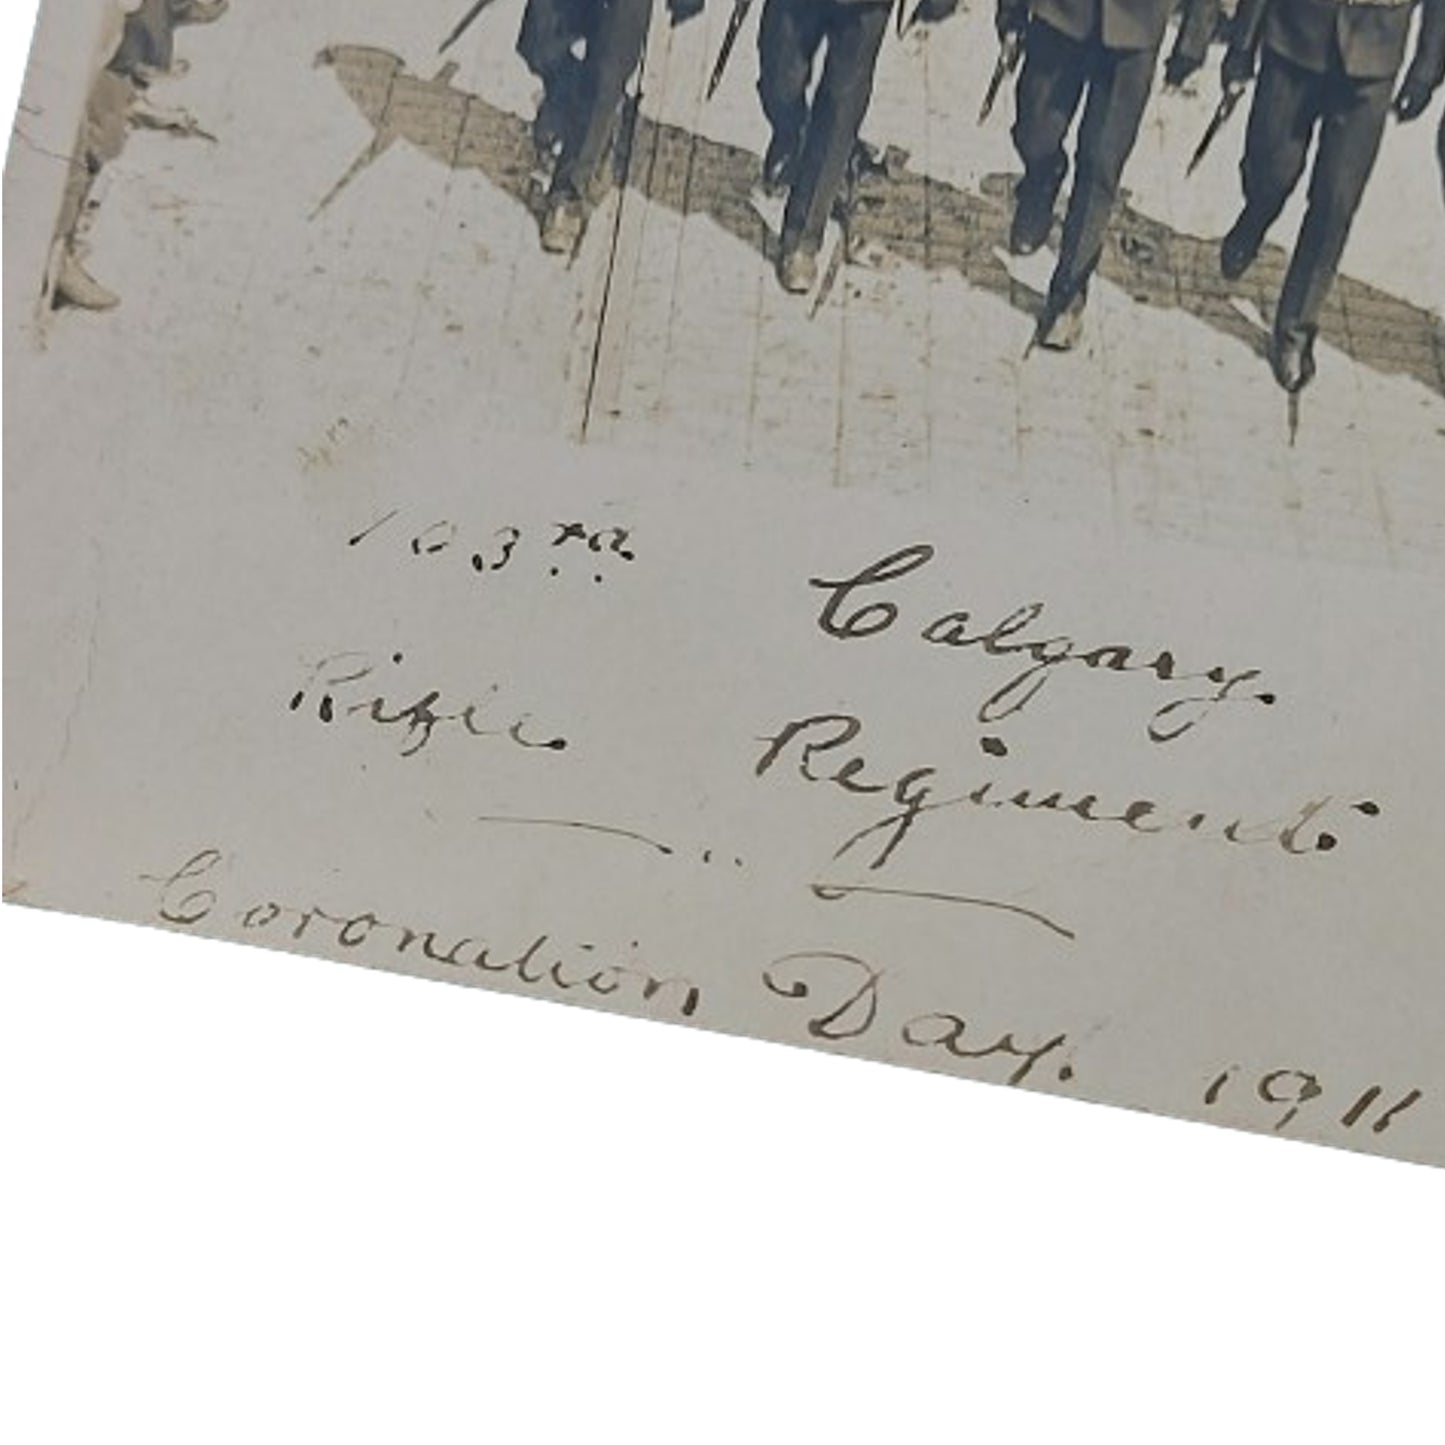 103rd. Calgary.
Rifle. Regiment.
Coronation Day. 1911